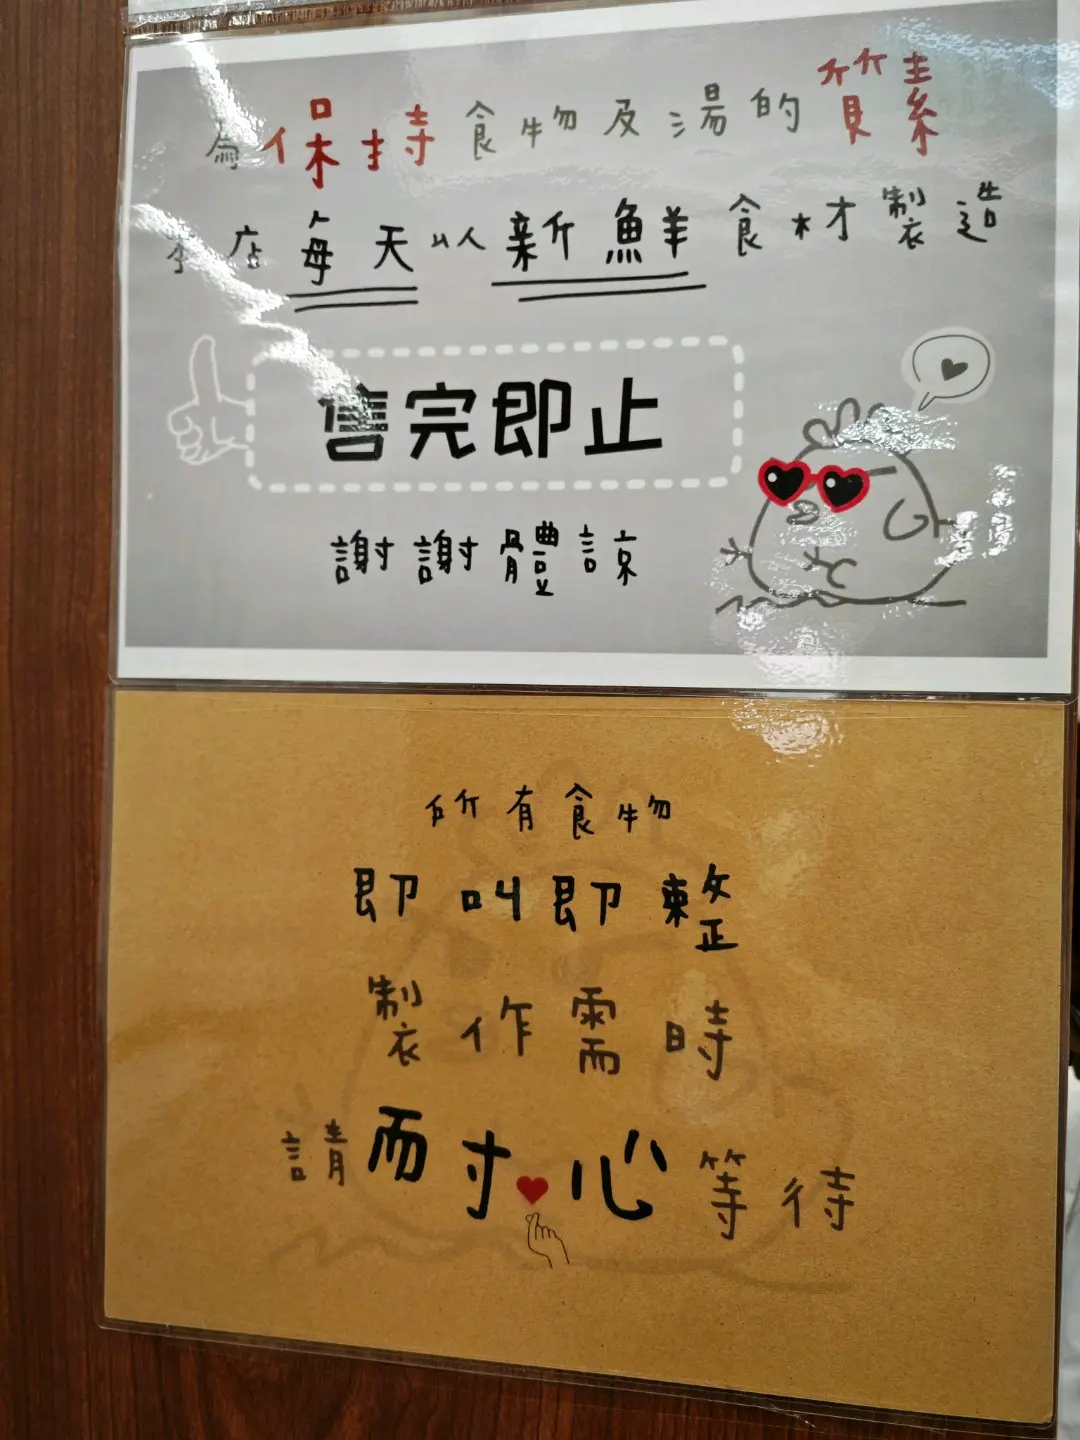 為保持食物及湯的質素
本店每天以新鮮食材製造
售完即止
謝謝體諒
所有食物
即叫即整
製作需時
請耐心等待